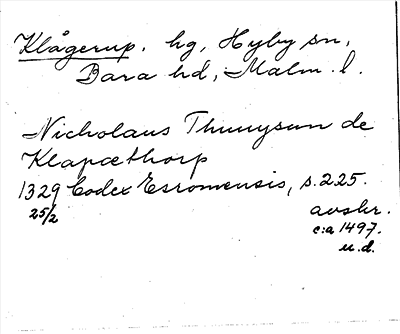 Klågerup. hg, Hyby sn,
Bara hd, Malm. l.
Nicholaus Thuuysun de
Klapæthorp
1329 Codex Esromensis, s. 225.
25/2 avskr.
c:a 1497.
u.d.